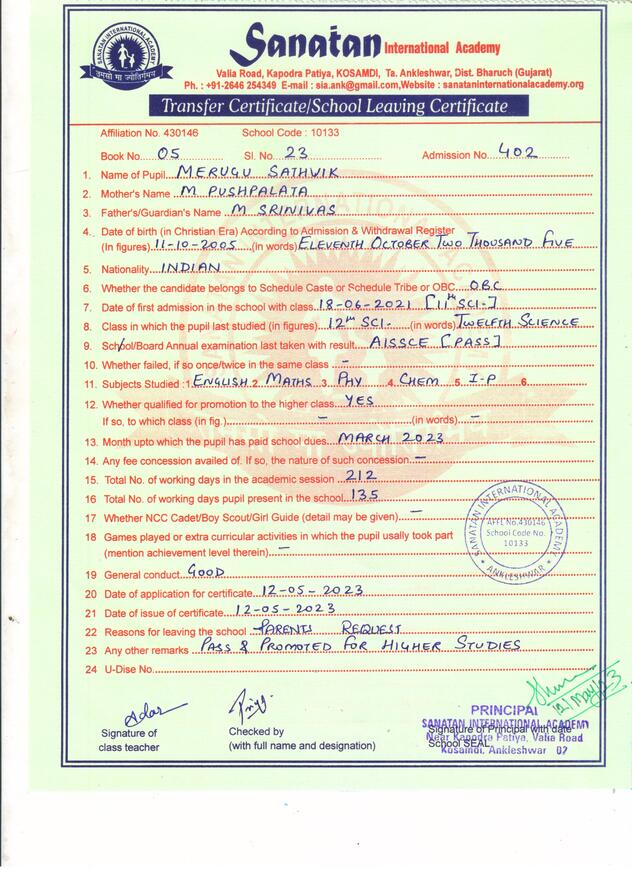 SANATAN INTERNATIONAL ACADEMY
तमसो मा ज्योतिर्गमय
Sanatan International Academy
Valia Road, Kapodra Patiya, KOSAMDI, Ta. Ankleshwar, Dist. Bharuch (Gujarat)
Ph. : +91-2646 254349 E-mail : sia.ank@gmail.com,Website : sanataninternationalacademy.org
Transfer Certificate/School Leaving Certificate
Affiliation No. 430146 School Code : 10133
Book No. 05 Sl. No. 23 Admission No. 402
1. Name of Pupil MERUGU SATHVIK
2. Mother's Name M PUSHPALATA
3. Father's/Guardian's Name M SRINIVAS
4. Date of birth (in Christian Era) According to Admission & Withdrawal Register
(In figures) 11-10-2005 (in words) ELEVENTH OCTOBER TWO THOUSAND FIVE
5. Nationality INDIAN
6. Whether the candidate belongs to Schedule Caste or Schedule Tribe or OBC OBC
7. Date of first admission in the school with class 18-06-2021 [11th SCI-]
8. Class in which the pupil last studied (in figures) 12th SCI- (in words) TWELFTH SCIENCE
9. School/Board Annual examination last taken with result AISSCE [PASS]
10. Whether failed, if so once/twice in the same class -
11. Subjects Studied : 1. ENGLISH 2. MATHS 3. PHY 4. CHEM 5. I-P 6.
12. Whether qualified for promotion to the higher class YES
If so, to which class (in fig.) - (in words) -
13. Month upto which the pupil has paid school dues MARCH 2023
14. Any fee concession availed of. If so, the nature of such concession -
15. Total No. of working days in the academic session 212
16 Total No. of working days pupil present in the school 135
17 Whether NCC Cadet/Boy Scout/Girl Guide (detail may be given) -
18 Games played or extra curricular activities in which the pupil usally took part
(mention achievement level therein) -
19 General conduct GOOD
20 Date of application for certificate 12-05-2023
21 Date of issue of certificate 12-05-2023
22 Reasons for leaving the school PARENTS REQUEST
23 Any other remarks PASS & PROMOTED FOR HIGHER STUDIES
24 U-Dise No.
SANATAN INTERNATIONAL ACADEMY
AFFL No.430146
School Code No.
10133
ANKLESHWAR
12/May/23
Signature of
class teacher
Checked by
(with full name and designation)
PRINCIPAL
SANATAN INTERNATIONAL ACADEMY
Signature of Principal with date
Near Kapodra Patiya, Valia Road
School SEAL
Kosamdi, Ankleshwar 02